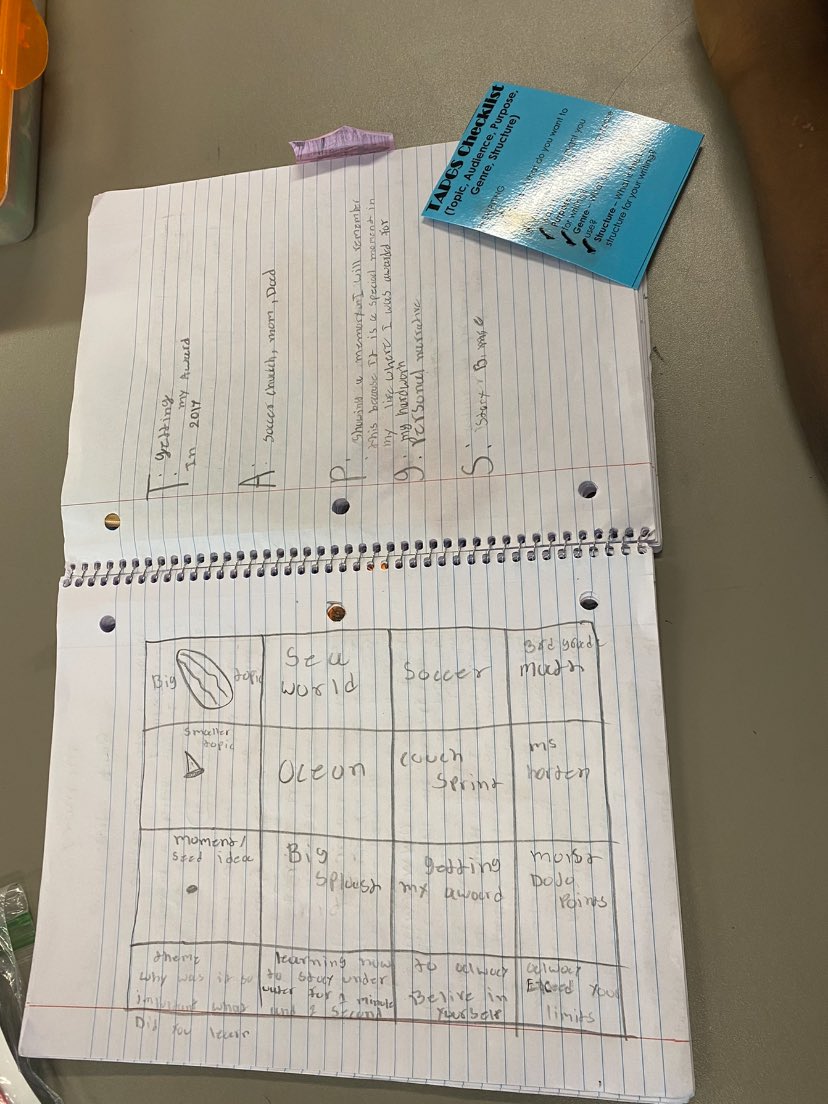 TAPGS Checklist
(Topic, Audience, Purpose,
Genre, Structure)
do you want to
Purpose
you
for
Genre - What
use?
Structure - What
structure for your writing?
T: getting
my Award
In 2017
A: soccer couch, mom, Dad
P: showing a memory I will remember
this because it is a special moment in
my life where I was awarded for
my hardwork
g: Personal narrative
S: story: B, m & e
Big topic
Sea
world
Soccer
3rd grade
math
smaller
topic
Ocean
couch
Sprint
ms
moment/
seed idea
Big
Splash
getting
my award
most
Dojo
Points
theme
why was it so
important what
Did you learn
learning how
to stay under
water for 1 minute
and 1 second
to alway
Belive in
yourself
alway
Exceed your
limits